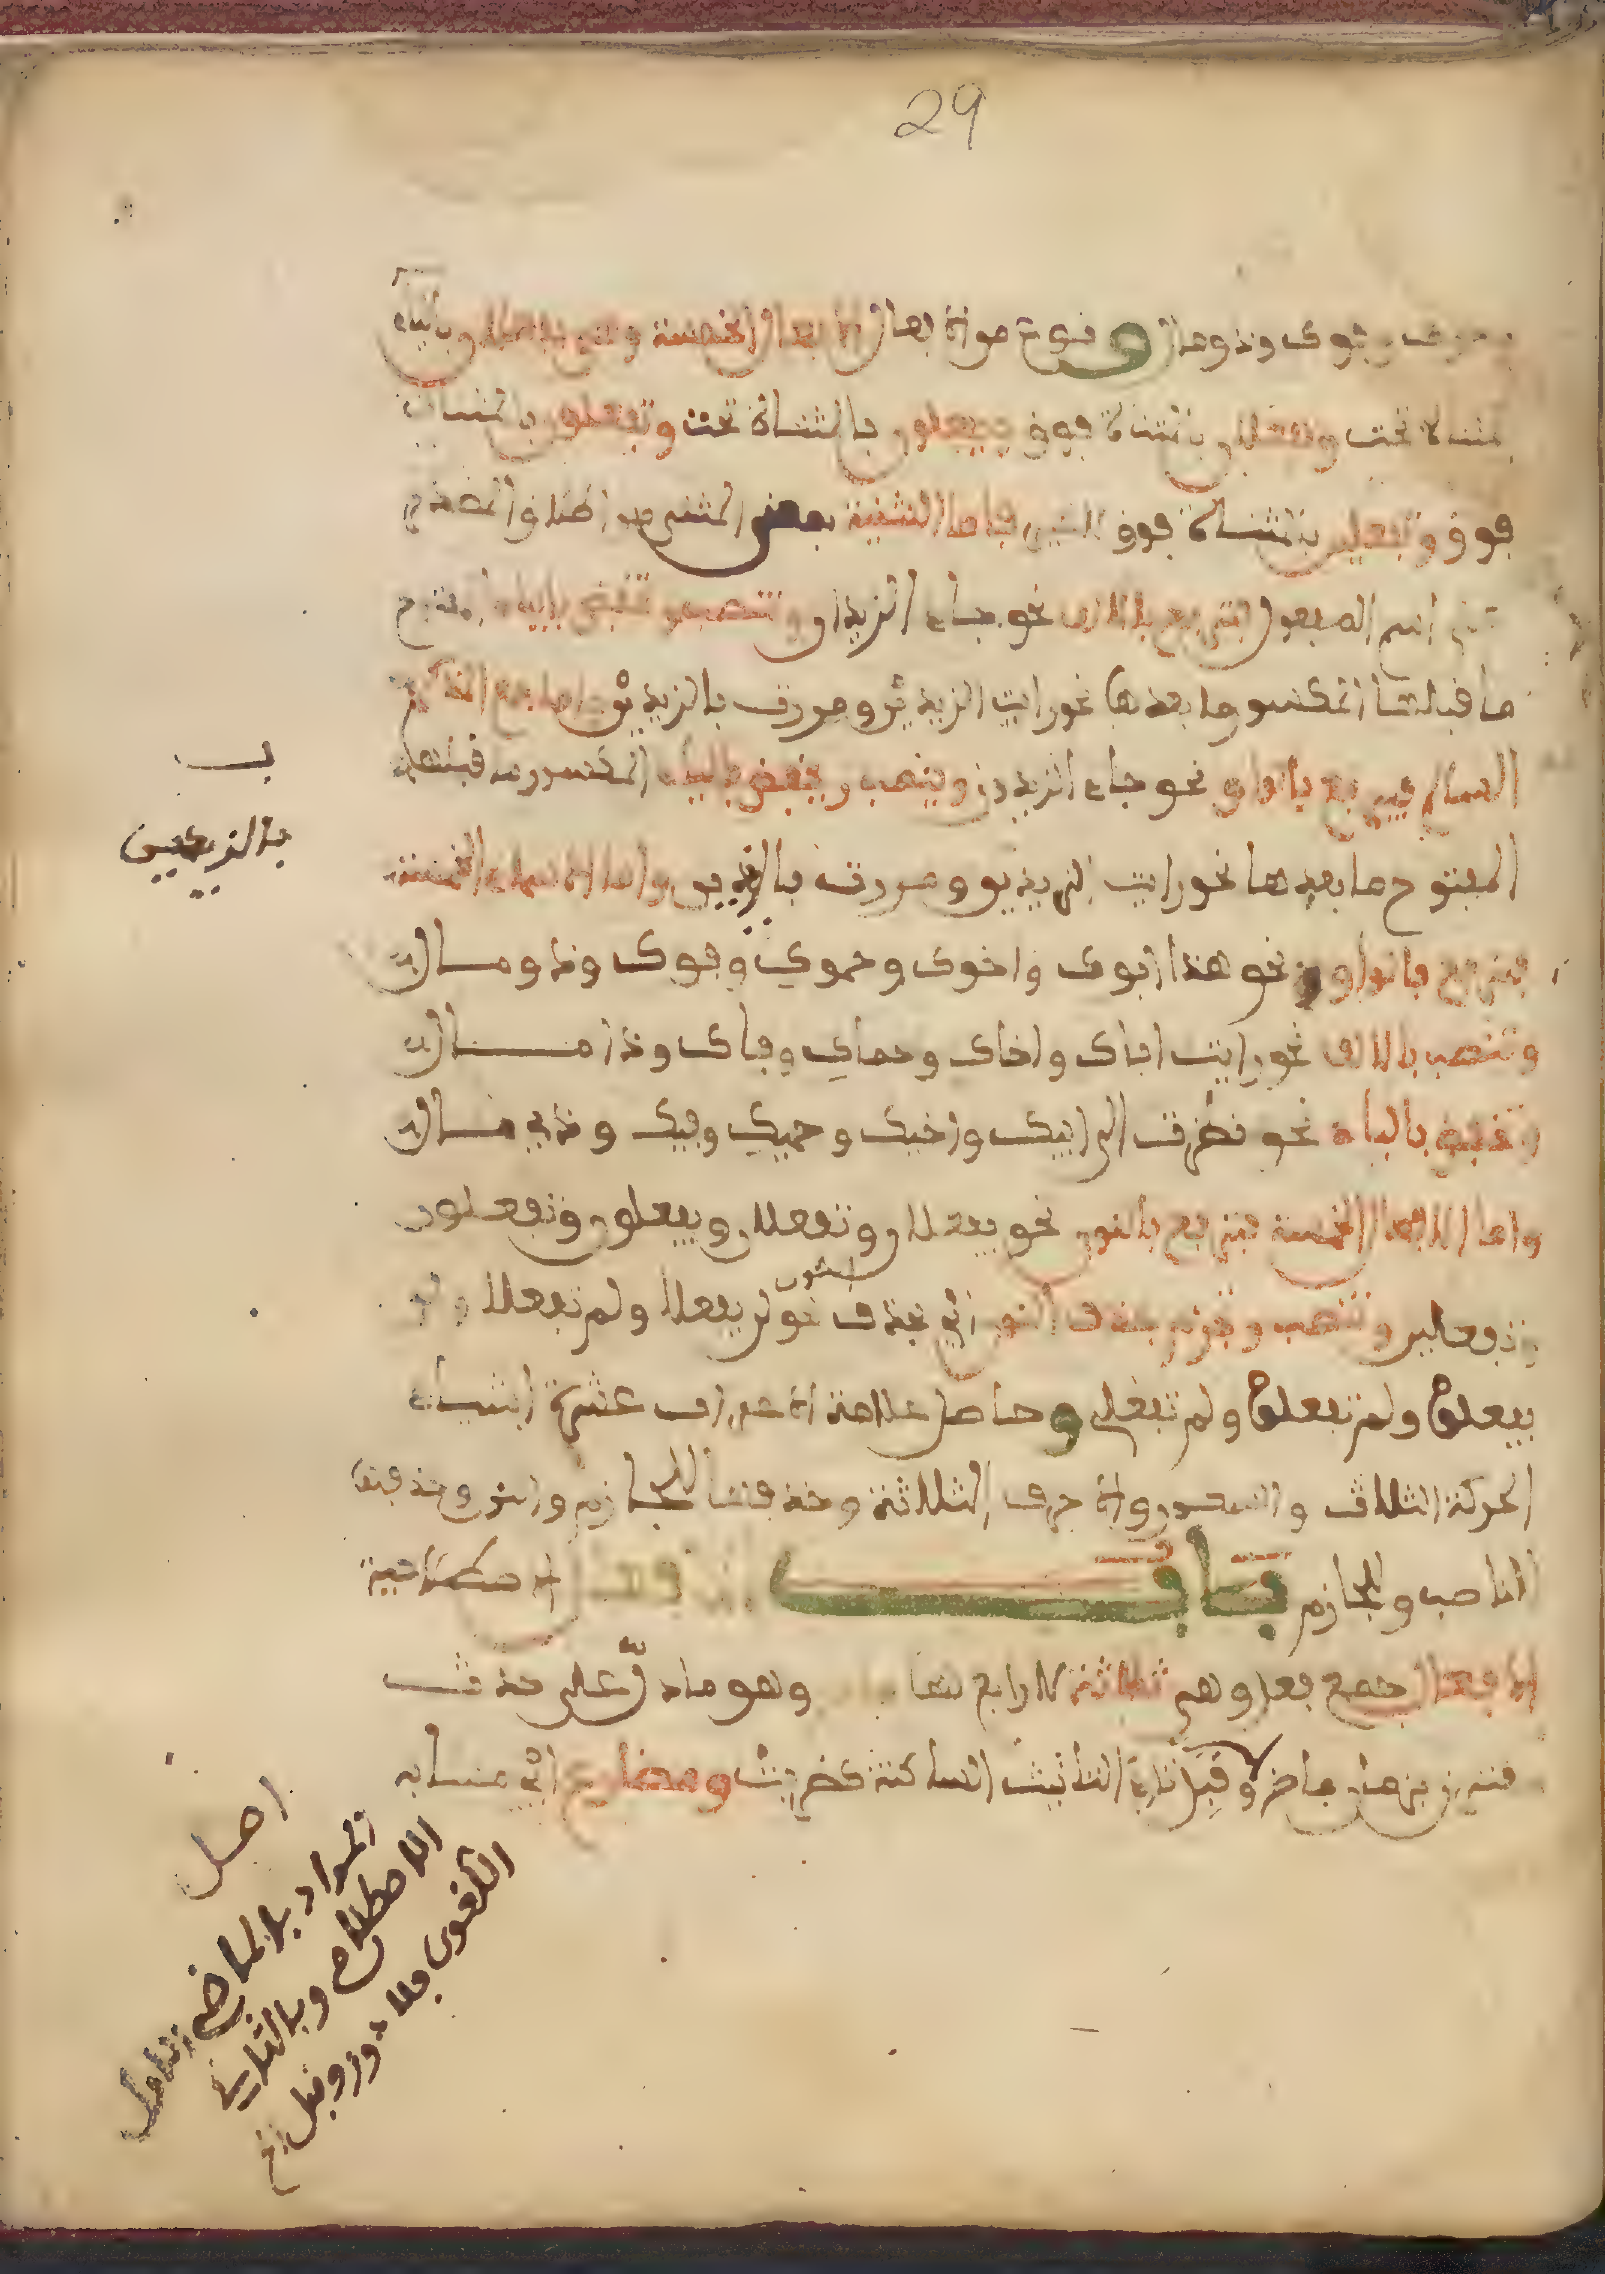 29
وفوك وذو مال ونوع من الافعال الافعال الخمسة وهي يفعلان بالياء
مثناة تحت وتفعلان بالمثناة فوق ويفعلون بالمثناة تحت وتفعلون بالمثناة
فوق وتفعلين بالمثناة فوق فاما التثنية بمعنى المثنى من اطلاق المصدر
على اسم المفعول فترفع بالالف نحو جاء الزيدان وتنصب وتخفض بالياء المفتوح
ما قبلها المكسور ما بعدها نحو رايت الزيدين ومررت بالزيدين واما جمع المذكر
السالم فيرفع بالواو نحو جاء الزيدون وينصب ويخفض بالياء المكسور ما قبلها
المفتوح ما بعدها نحو رايت الزيدين ومررت بالزيدين واما الاسماء الخمسة
فترفع بالواو نحو هذا ابوك واخوك وحموك وفوك وذو مال
وتنصب بالالف نحو رايت اباك واخاك وحماك وفاك وذا مال
وتخفض بالياء نحو نظرت الى ابيك واخيك وحميك وفيك وذي مال
واما الافعال الخمسة فترفع بالنون نحو يفعلان وتفعلان ويفعلون وتفعلون
وتفعلين وتنصب وتجزم بحذف النون اي بحذف النون نحو لم يفعلا ولم تفعلا ولم
يفعلوا ولم تفعلوا ولم تفعلي وحاصل علامة الاعراب عشرة اشياء
الحركة الثلاث والسكون والاحرف الثلاثة وحذفها للجازم والنون وحذفها
للناصب والجازم باب الافعال الاصطلاحية
الافعال جمع فعل وهي ثلاثة لا رابع لها وهو ما دل على حدث
مقترن بزمان ماض وقبل تاء التانيث الساكنة كضربت ومضارع اي مشابه
ب
بالزيديين
اصل
المراد بالماضي الاول
الاصطلاح وبالثاني
اللغوي فلا دور وقيل اخ